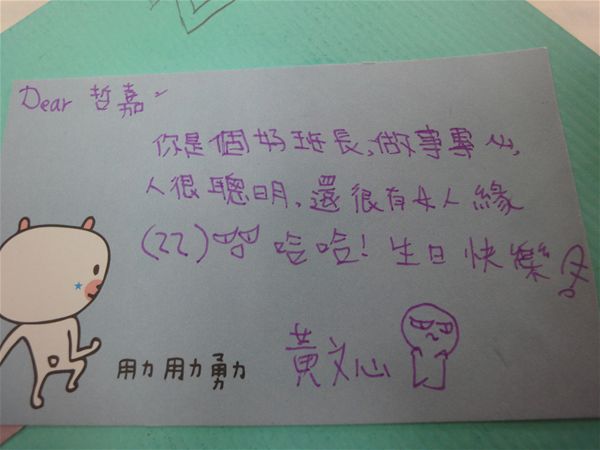 Dear 哲嘉~
你是個好班長,做事專心,
人很聰明,還很有女人緣
(ㄛㄛ) 哈哈!生日快樂
黃文心
用力用力勇力